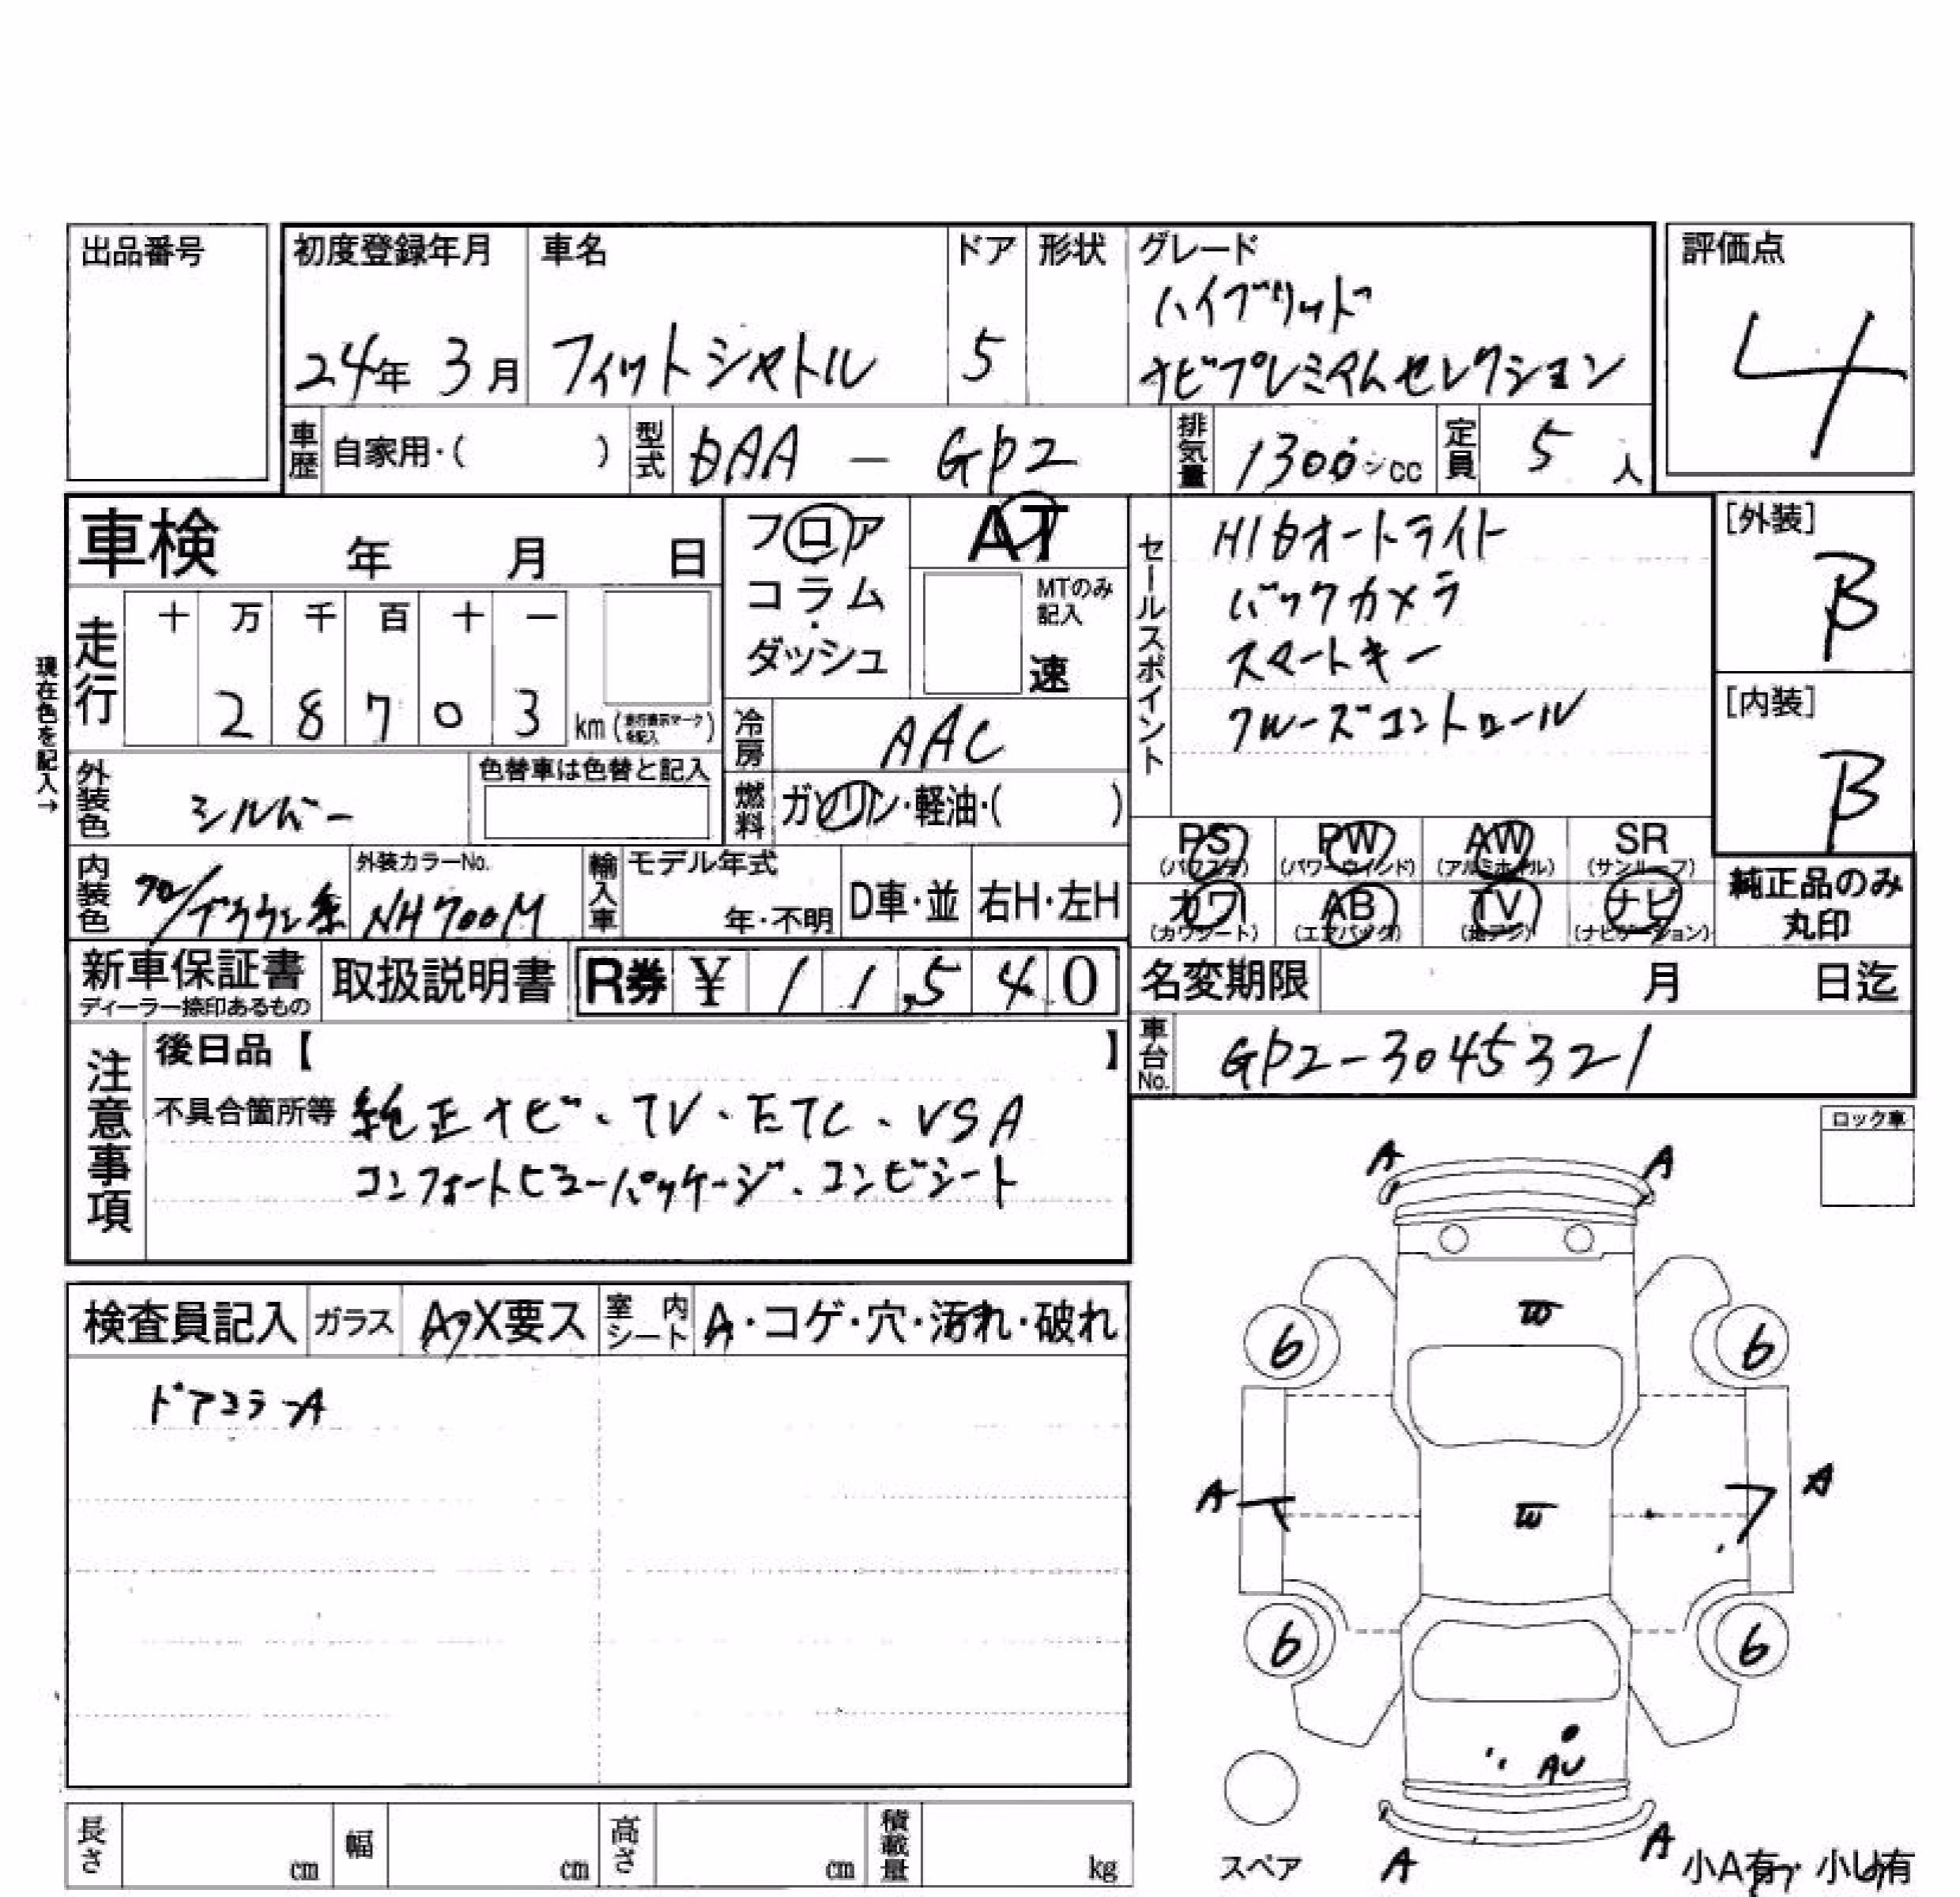 出品番号
初度登録年月 車名 ドア 形状 グレード 評価点
ハイブリッド
24年 3月 フィットシャトル 5 ナビプレミアムセレクション 4
車歴 自家用・( ) 型式 DAA - GP2 排気量 1300cc 定員 5人
車検 年 月 日
フロア AT
コラム・
ダッシュ
MTのみ記入
速
走行 十 万 千 百 十 一
2 8 7 0 3 km (走行表示マークを記入)
現在色を記入→
冷房 AAC
外装色 シルバー 色替車は色替と記入
燃料 ガソリン・軽油・( )
内装色 ブラウン系 外装カラーNo. NH700M 輸入車 モデル年式 年・不明 D車・並 右H・左H
セールスポイント
HIDオートライト
バックカメラ
スマートキー
クルーズコントロール
[外装] B
[内装] B
PS (パワステ) PW (パワーウィンド) AW (アルミホイル) SR (サンルーフ)
カワ (カワシート) AB (エアバック) TV (地デジ) ナビ (ナビゲーション)
純正品のみ丸印
新車保証書 ディーラー捺印あるもの 取扱説明書 R券 ¥ 11,540
名変期限 月 日迄
車台No. GP2-3045321
注意事項
後日品【 】
不具合箇所等 純正ナビ・TV・ETC・VSA
コンフォートビューパッケージ、コンビシート
ロック車
検査員記入 ガラス A・X要ス 室内シート A・コゲ・穴・汚れ・破れ
ドアミラーA
A A
W
6 6
A W A
6 6
AU
A A
スペア
小A有 小U有
長さ cm 幅 cm 高さ cm 積載量 kg